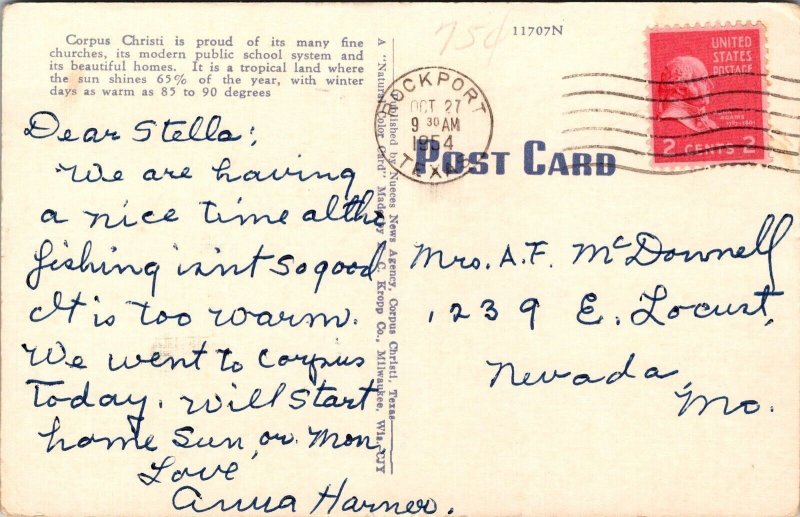 Corpus Christi is proud of its many fine
churches, its modern public school system and
its beautiful homes. It is a tropical land where
the sun shines 65% of the year, with winter
days as warm as 85 to 90 degrees
Dear Stella:
We are having
a nice time altho
fishing isn't so good
It is too warm.
We went to Corpus
Today. Will start
home Sun, or Mon,
Love
Anna Harner.
A "Natural Color Card" Made by C. Kropp Co., Milwaukee, Wis.
Published by Nueces News Agency, Corpus Christi, Texas
75¢
11707N
ROCKPORT
OCT 27
9 30 AM
1954
TEX
POST CARD
UNITED
STATES
POSTAGE
ADAMS
1797-1801
2 CENTS 2
Mrs. A.F. McDownell
1239 E. Locust,
Nevada,
Mo.